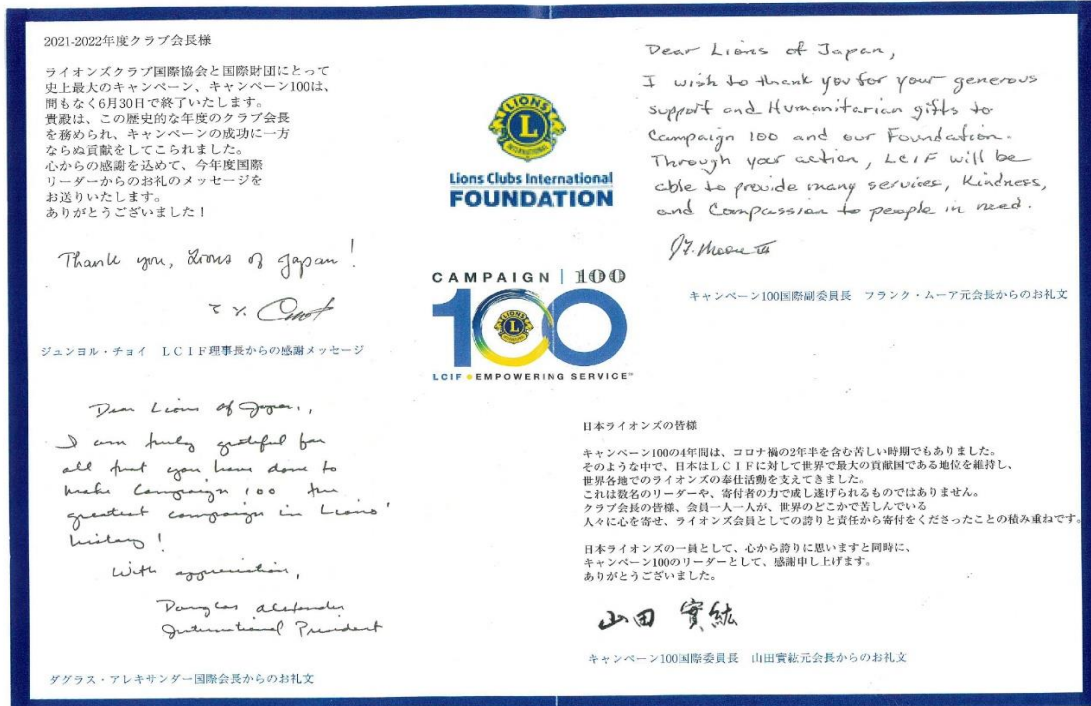 2021-2022年度クラブ会長様
ライオンズクラブ国際協会と国際財団にとって
史上最大のキャンペーン、キャンペーン100は、
間もなく6月30日で終了いたします。
貴殿は、この歴史的な年度のクラブ会長
を務められ、キャンペーンの成功に一方
ならぬ貢献をしてこられました。
心からの感謝を込めて、今年度国際
リーダーからのお礼のメッセージを
お送りいたします。
ありがとうございました！
Thank you, Lions of Japan!
ジュンヨル・チョイ　ＬＣＩＦ理事長からの感謝メッセージ
Dear Lions of Japan,,
I am truly grateful for
all that you have done to
make Campaign 100 the
greatest campaign in Lions'
history!
With appreciation,
Douglas Alexander
International President
ダグラス・アレキサンダー国際会長からのお礼文
LIONS
L
INTERNATIONAL
Lions Clubs International
FOUNDATION
CAMPAIGN | 100
100
LIONS
L
LCIF • EMPOWERING SERVICE™
Dear Lions of Japan,
I wish to thank you for your generous
support and Humanitarian gifts to
Campaign 100 and our Foundation.
Through your action, LCIF will be
able to provide many services, Kindness,
and Compassion to people in need.
キャンペーン100国際副委員長　フランク・ムーア元会長からのお礼文
日本ライオンズの皆様
キャンペーン100の4年間は、コロナ禍の2年半を含む苦しい時期でもありました。
そのような中で、日本はＬＣＩＦに対して世界で最大の貢献国である地位を維持し、
世界各地でのライオンズの奉仕活動を支えてきました。
これは数名のリーダーや、寄付者の力で成し遂げられるものではありません。
クラブ会長の皆様、会員一人一人が、世界のどこかで苦しんでいる
人々に心を寄せ、ライオンズ会員としての誇りと責任から寄付をくださったことの積み重ねです。
日本ライオンズの一員として、心から誇りに思いますと同時に、
キャンペーン100のリーダーとして、感謝申し上げます。
ありがとうございました。
山田 實紘
キャンペーン100国際委員長　山田實紘元会長からのお礼文